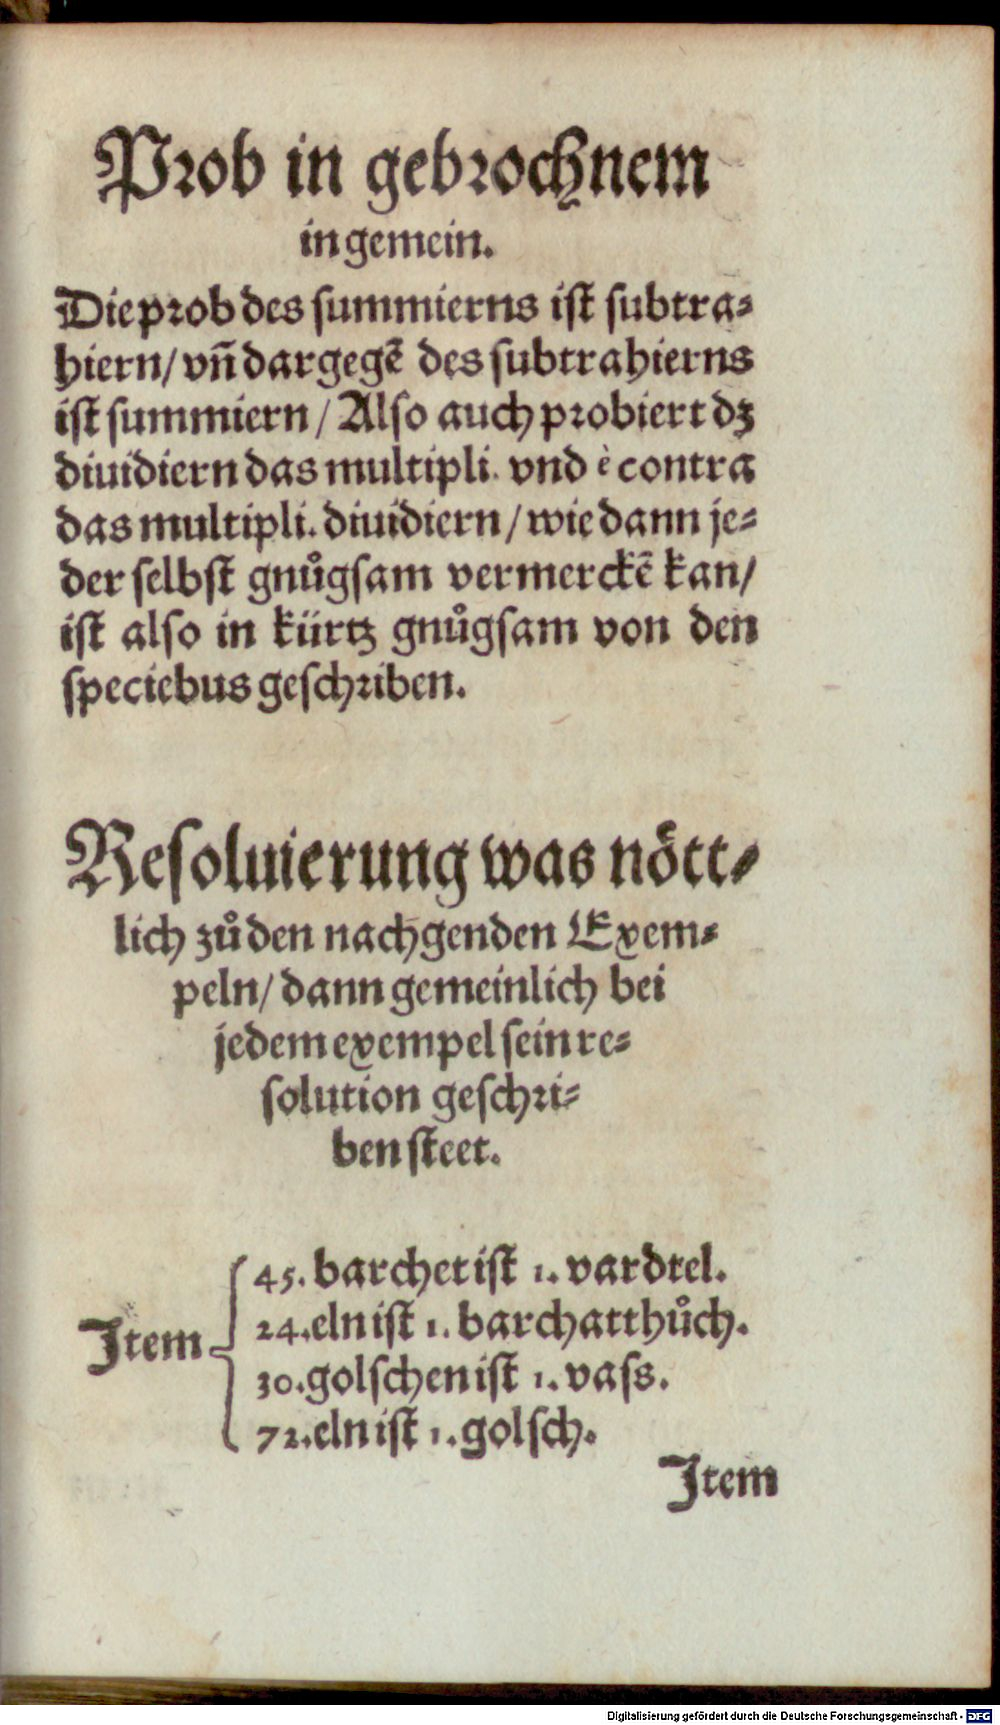 Prob in gebrochnem
in gemein.
Die prob des summierns ist subtra-
hiern/ vñ dar gegẽ des subtrahierns
ist summiern / Also auch probiert dz
diuidiern das multipli. vnd è contra
das multipli. diuidiern / wie dann je-
der selbst gnůgsam vermerckẽ kan/
ist also in kürtz gnůgsam von den
speciebus geschriben.
Resoluierung was nött-
lich zů den nachgenden Exem-
peln/ dann gemeinlich bei
jedem exempel sein re-
solution geschri-
ben steet.
Item
45. barchet ist 1. vardtel.
24. eln ist 1. barchatthůch.
30. golschen ist 1. vass.
72. eln ist 1. golsch.
Item
Digitalisierung gefördert durch die Deutsche Forschungsgemeinschaft - DFG